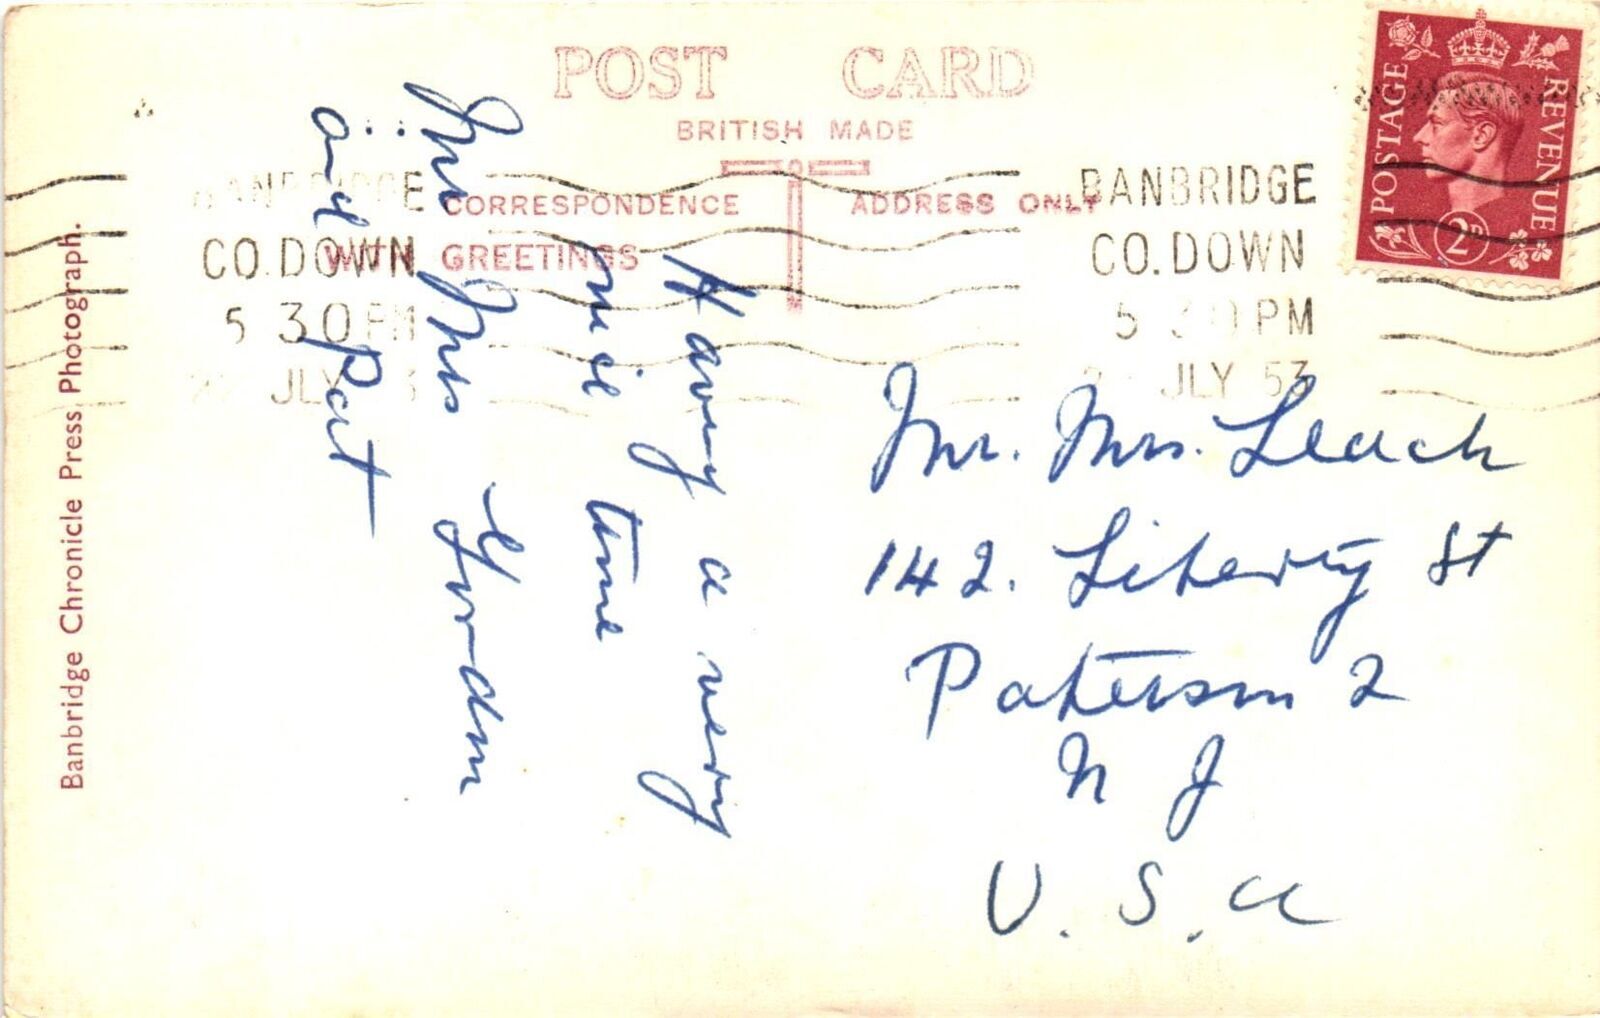 POST CARD
BRITISH MADE
CORRESPONDENCE
ADDRESS ONLY
WITH GREETINGS
BANBRIDGE
CO. DOWN
5 30 PM
JLY
BANBRIDGE
CO. DOWN
5 30 PM
JLY 53
POSTAGE
REVENUE
2D
Having a very
nice time
Mr Mrs Gordon
and Pat
Mr. Mrs. Leach
142. Liberty St
Paterson 2
N J
U. S. A
Banbridge Chronicle Press Photograph.